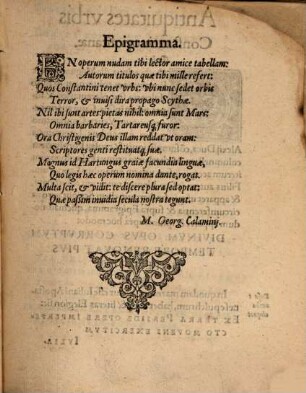 Epigramma.
EN operum nudam tibi lector amice tabellam:
Autorum titulos quæ tibi mille refert:
Quos Constantini tenet vrbs: vbi nunc sedet orbis
Terror, & inuisi dira propago Scythæ.
Nil ibi sunt artes: pietas nihil: omnia sunt Mars:
Omnia barbaries, Tartareusq́; furor.
Ora Christigenis Deus illam reddat vt oram:
Scriptores genti restituatq́; suæ.
Magnus id Hartungus graiæ facundia linguæ,
Quo legis hæc operium nomina dante, rogat.
Multa scit, & vidit: te discere plura sed optat:
Quæ passim inuidia secula nostra tegunt.
M. Georg. Calamius.